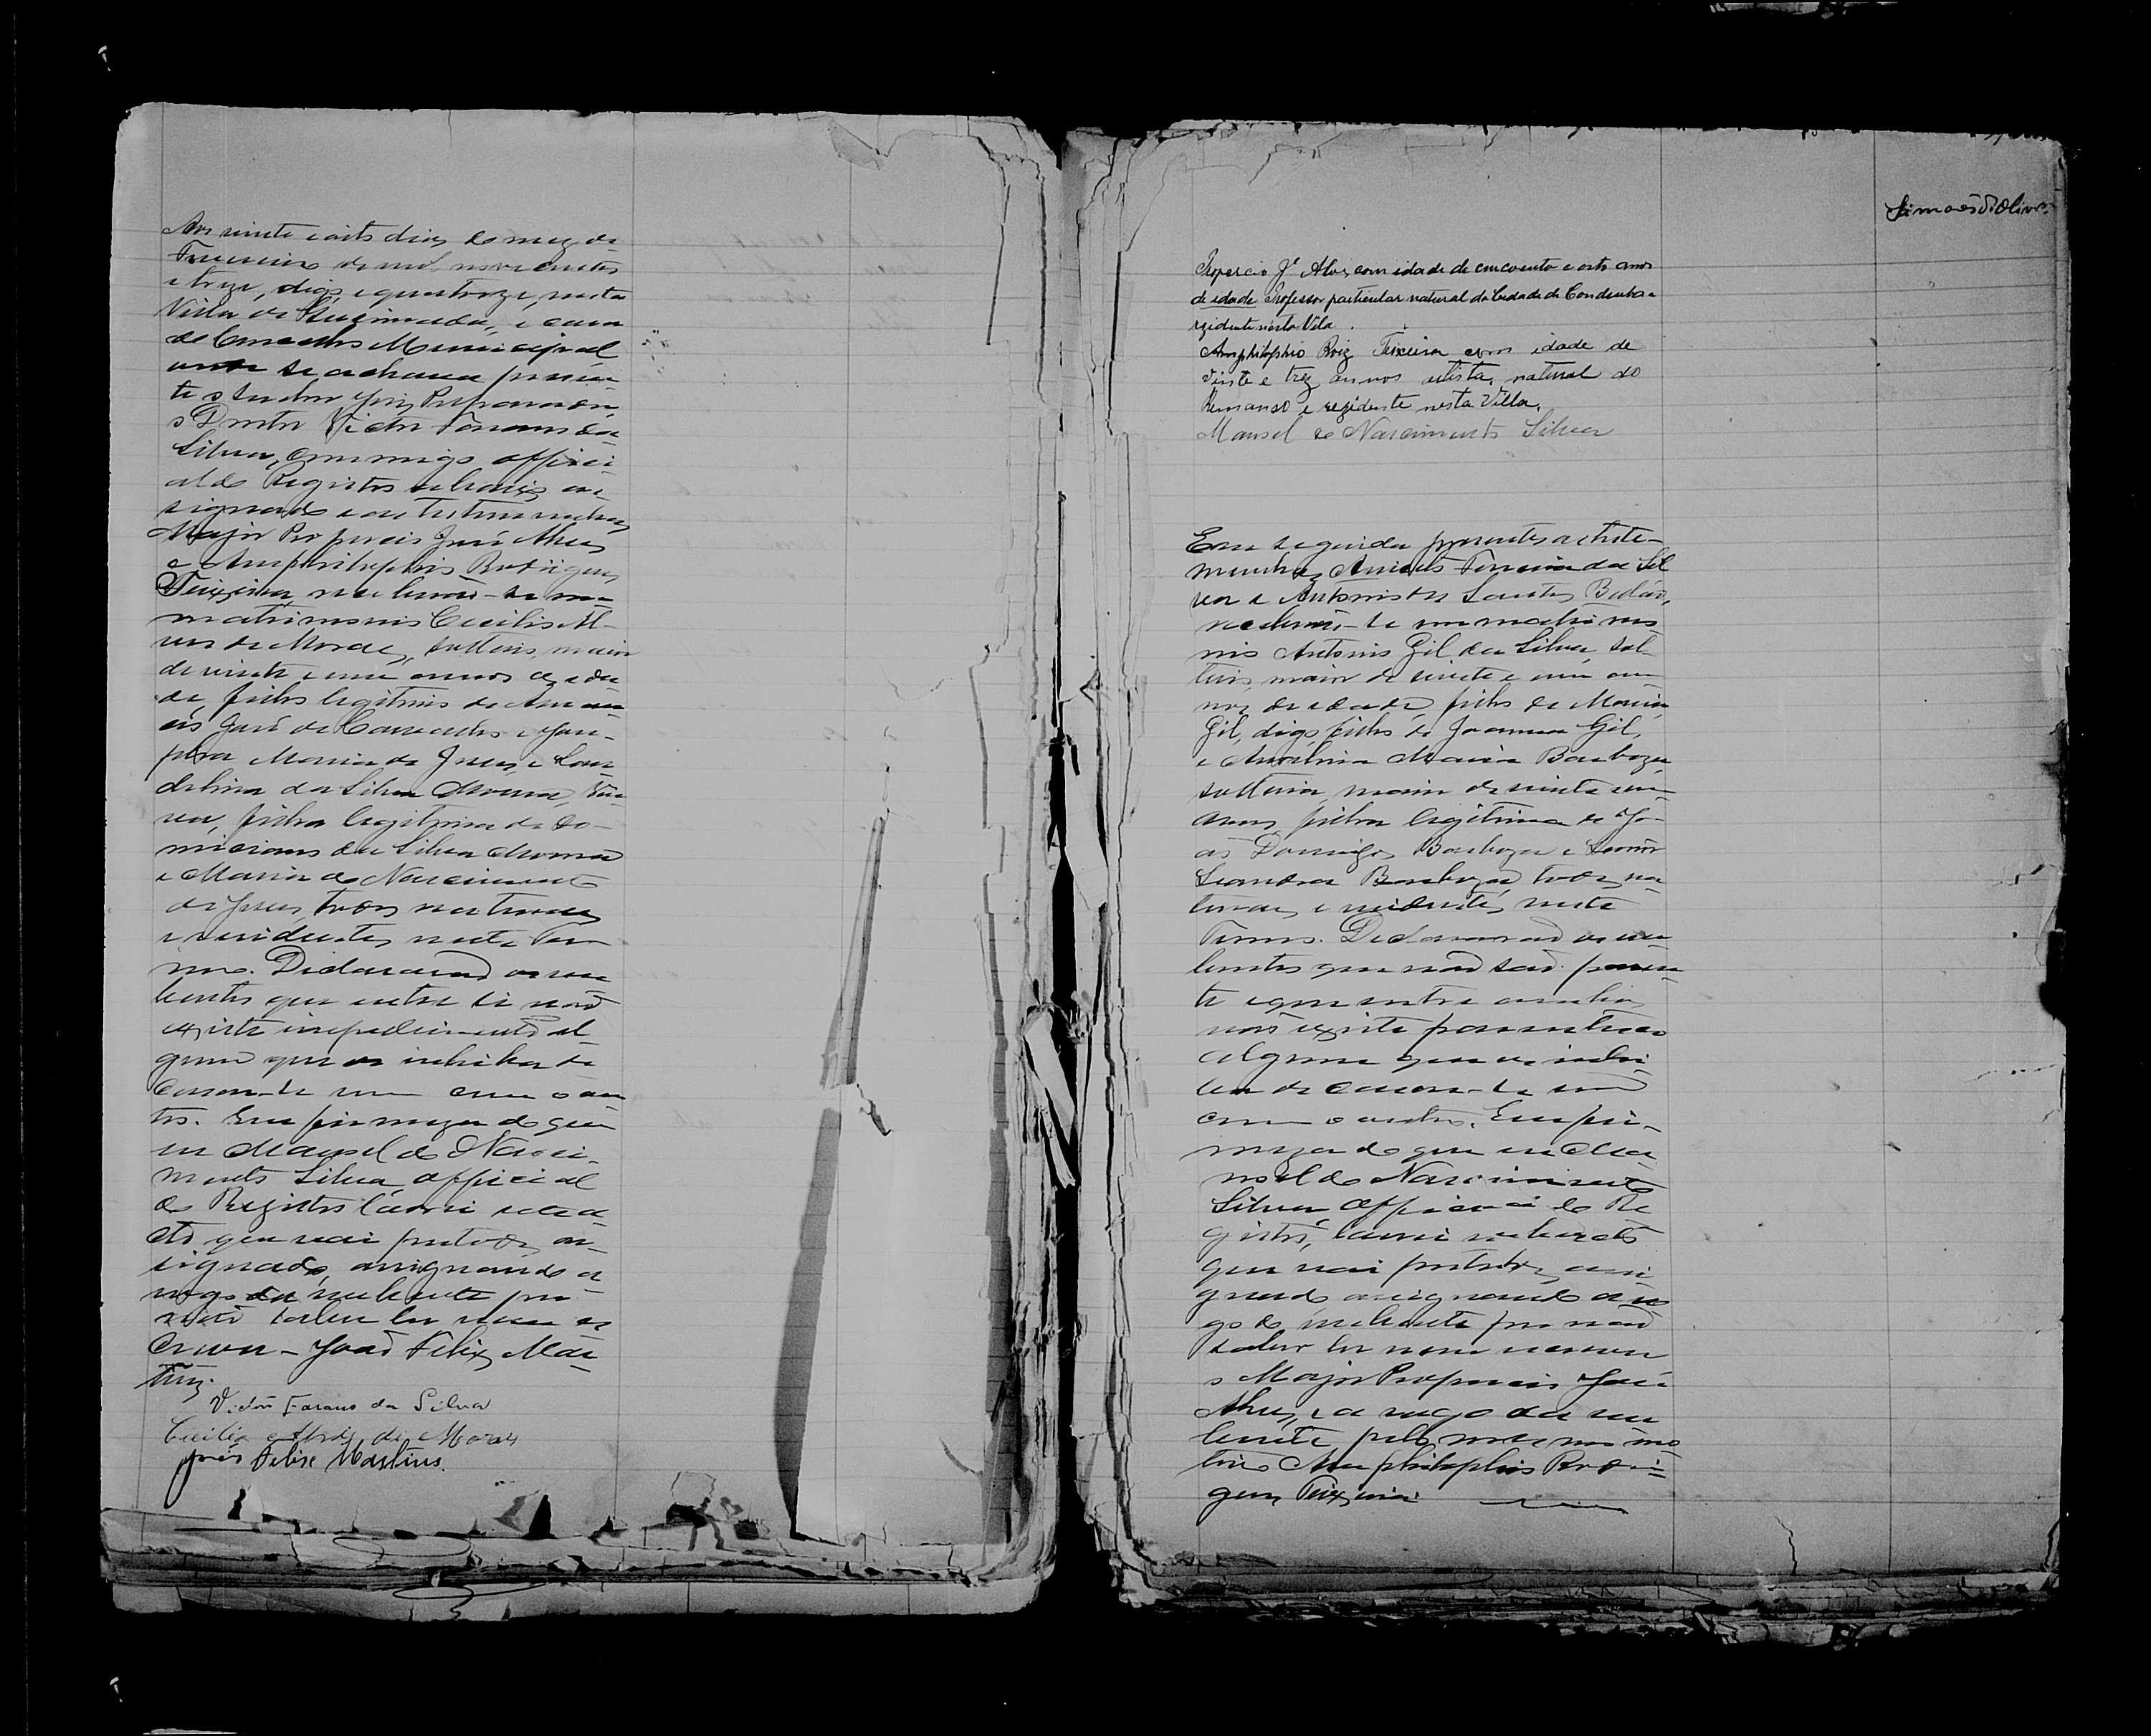 Aos vinte e oito dias do mez de
Fevereiro de mil novecentos
e treze, digo, e quatorze, nesta
Villa de
do Conselho Municipal
onde se achava presen-
te o Senhor Juiz Preparador,
o Doutor Victor Farano da
Silva, commigo offici-
al do Registro abaixo as-
signado e as testemunhas
Major Propercio José Alves
e Amphilophio Rodrigues
Teixeira, receberão-se em
matrimonio Cecilio Al-
ves de Moraes, solteiro, maior
de vinte e um annos de eda-
de, filho legitimo de
José de e
Maria de Jesus, e Lau-
delina da Silva Moura,
filha legitima de Do-
miciano da Silva Moura
e Maria do Nascimento
de Jesus, todos naturaes
e residentes neste Ter-
mo. Declararão os nu-
bentes que entre si não
existe impedimento al-
gum que os inhiba de
casar-se um com o ou-
tro. Em firmeza do que
eu Manoel do Nasci-
mento Silva official
do Registro lavrei este a-
cto que vai por todos as-
signado, assignando a
rogo da nubente por
não saber ler nem es-
crever - João Felix Mar-
tins.
Victor Farano da Silva
Cecilio Alves de Moraes
João Felix Martins.
Simões d'Oliveira
Propercio Jé Alves com idade de cincoenta e oito anos
de idade Professor particular natural da Cidade de Condeuba e
rezidente nésta Vila.
Amphilophio Roiz Teixeira com idade de
vinte e trez annos artista, natural do
Remanso e rezidente nesta Villa.
Manoel do Nascimento Silva
Em seguida, presentes as teste-
munhas Aniceto Ferreira da Sil
va e Antonio dos Santos
receberão-se em matrimo
nio Antonio Gil da Silva, sol-
teiro, maior de vinte e um an
nos de edade, filho de Maria
Gil, digo, filho de Joanna Gil,
e Maria Barboza,
solteira, maior de vinte um
annos, filha legitima de Jo-
ão Domingos Barboza e
Leandra Barboza, todos na
turaes e residentes neste
Termo. Declararão os nu
bentes que não são paren
te e que entre ambos
não existe parentesco
algum que os inhi
ba de casar-se um
com o outro. Em fir-
meza do que eu Ma
noel do Nascimento
Silva, official do Re
gistro, lavrei este acto
que vai por todos assi
gnado assignando a ro
go do nubente por não
saber ler nem escrever
o Major Propercio José
Alves, e a rogo da nu
bente pelo mesmo mo
tivo Amphilophio Rodri=
gues Teixeira